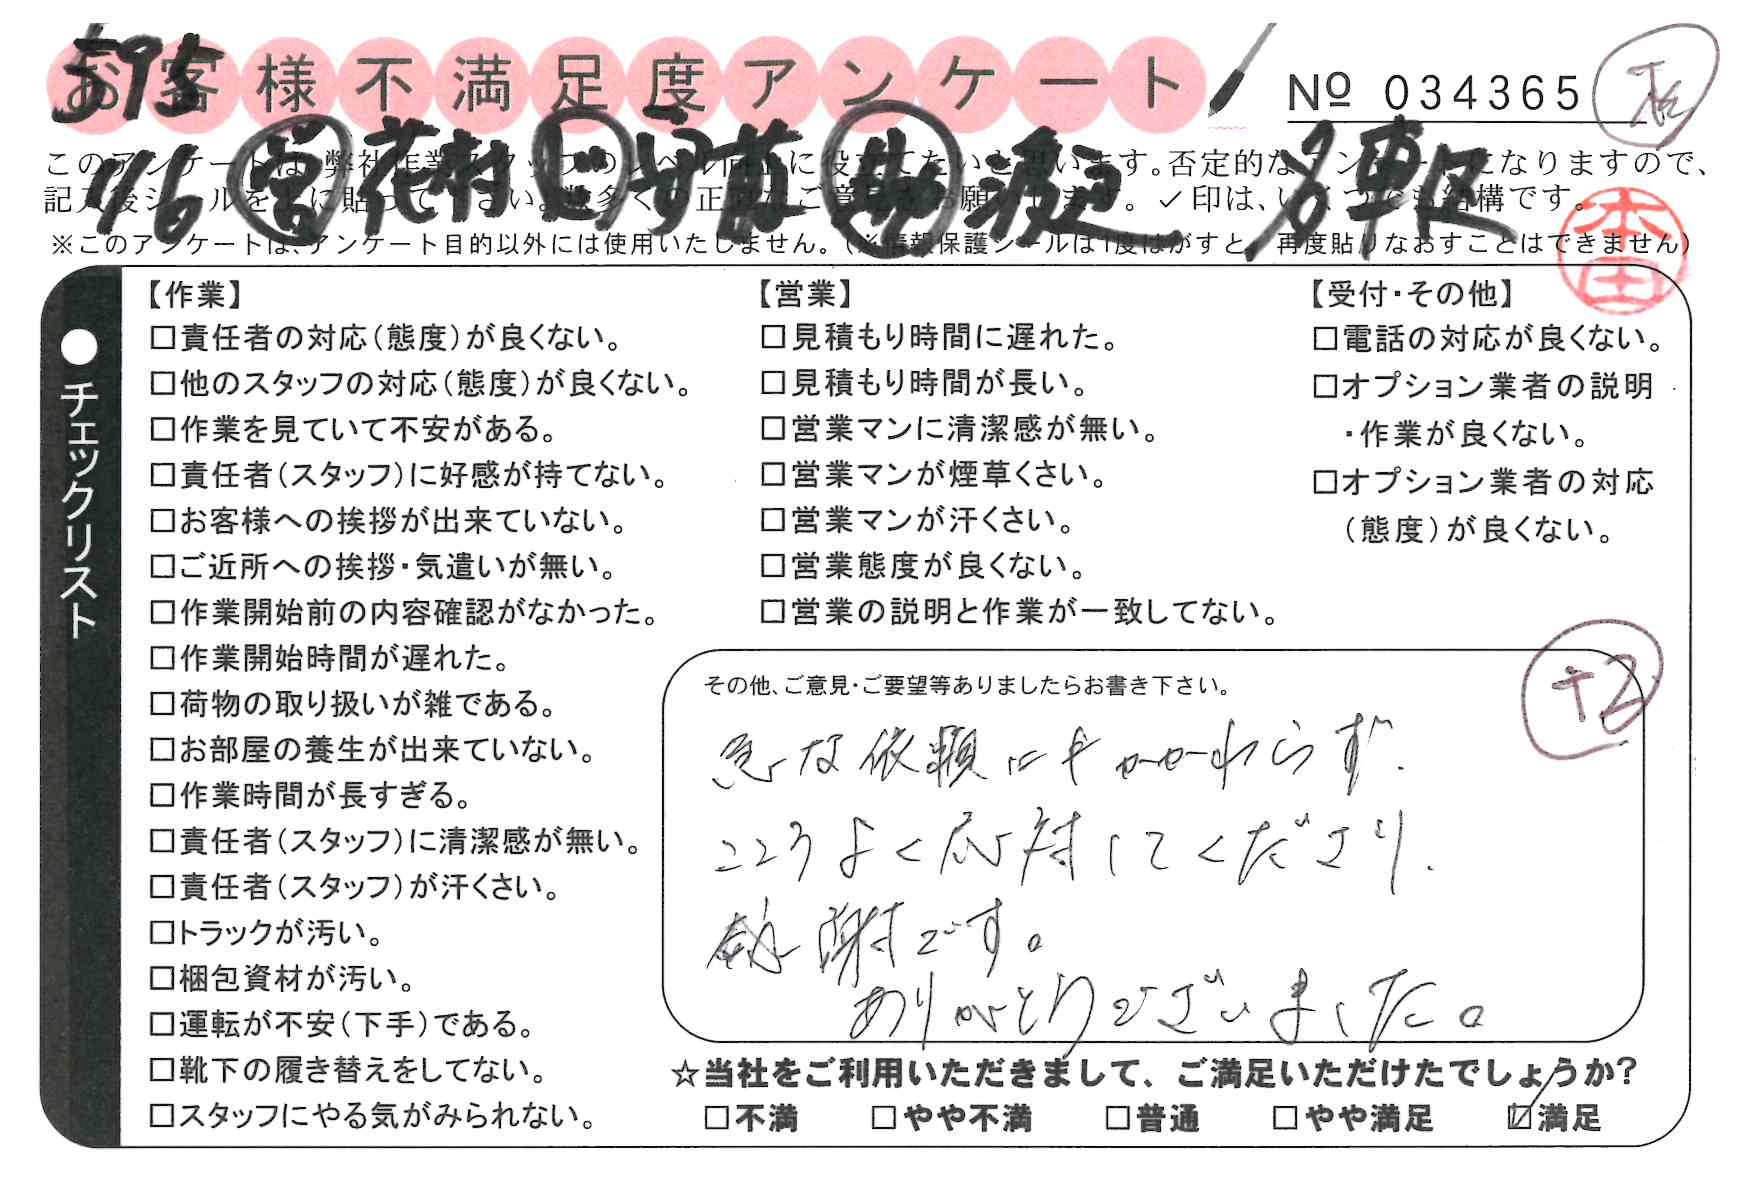 595
お客様不満足度アンケート
№ 034365
このアンケートは、弊社作業スタッフのレベル向上に役立てたいと思います。否定的なアンケートになりますので、
記入後シールを上に貼って下さい。数多くの正直なご意見をお願いします。✓印は、いくつでも結構です。
※このアンケートは、アンケート目的以外には使用いたしません。(※情報保護シールは1度はがすと、再度貼りなおすことはできません)
本田
●チェックリスト
【作業】
□責任者の対応(態度)が良くない。
□他のスタッフの対応(態度)が良くない。
□作業を見ていて不安がある。
□責任者(スタッフ)に好感が持てない。
□お客様への挨拶が出来ていない。
□ご近所への挨拶・気遣いが無い。
□作業開始前の内容確認がなかった。
□作業開始時間が遅れた。
□荷物の取り扱いが雑である。
□お部屋の養生が出来ていない。
□作業時間が長すぎる。
□責任者(スタッフ)に清潔感が無い。
□責任者(スタッフ)が汗くさい。
□トラックが汚い。
□梱包資材が汚い。
□運転が不安(下手)である。
□靴下の履き替えをしてない。
□スタッフにやる気がみられない。
【営業】
□見積もり時間に遅れた。
□見積もり時間が長い。
□営業マンに清潔感が無い。
□営業マンが煙草くさい。
□営業マンが汗くさい。
□営業態度が良くない。
□営業の説明と作業が一致してない。
【受付・その他】
□電話の対応が良くない。
□オプション業者の説明
・作業が良くない。
□オプション業者の対応
(態度)が良くない。
その他、ご意見・ご要望等ありましたらお書き下さい。
急な依頼にもかかわらず、
こころよく応対してくださり、
感謝です。
ありがとうございました。
☆当社をご利用いただきまして、ご満足いただけたでしょうか?
□不満 □やや不満 □普通 □やや満足 ☑満足